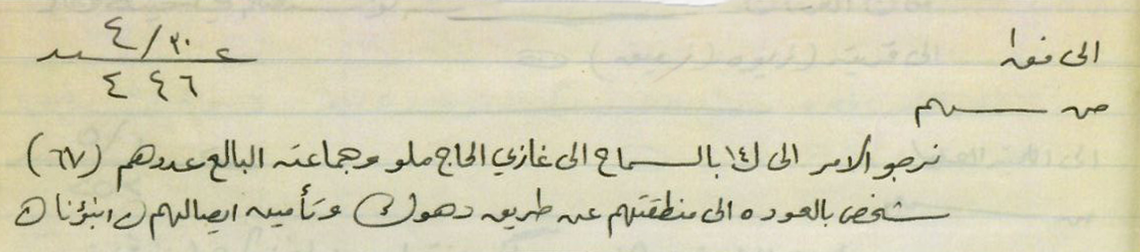 الى فق١
ع ٣٠/٤
٤٤٦
من سهم
نرجو الامر الى ل١٤ بالسماح الى غازي الحاج ملو وجماعته البالغ عددهم (٦٧)
شخص بالعوده الى منطقتهم عن طريق دهوك وتأمين ايصالهم انبؤنا